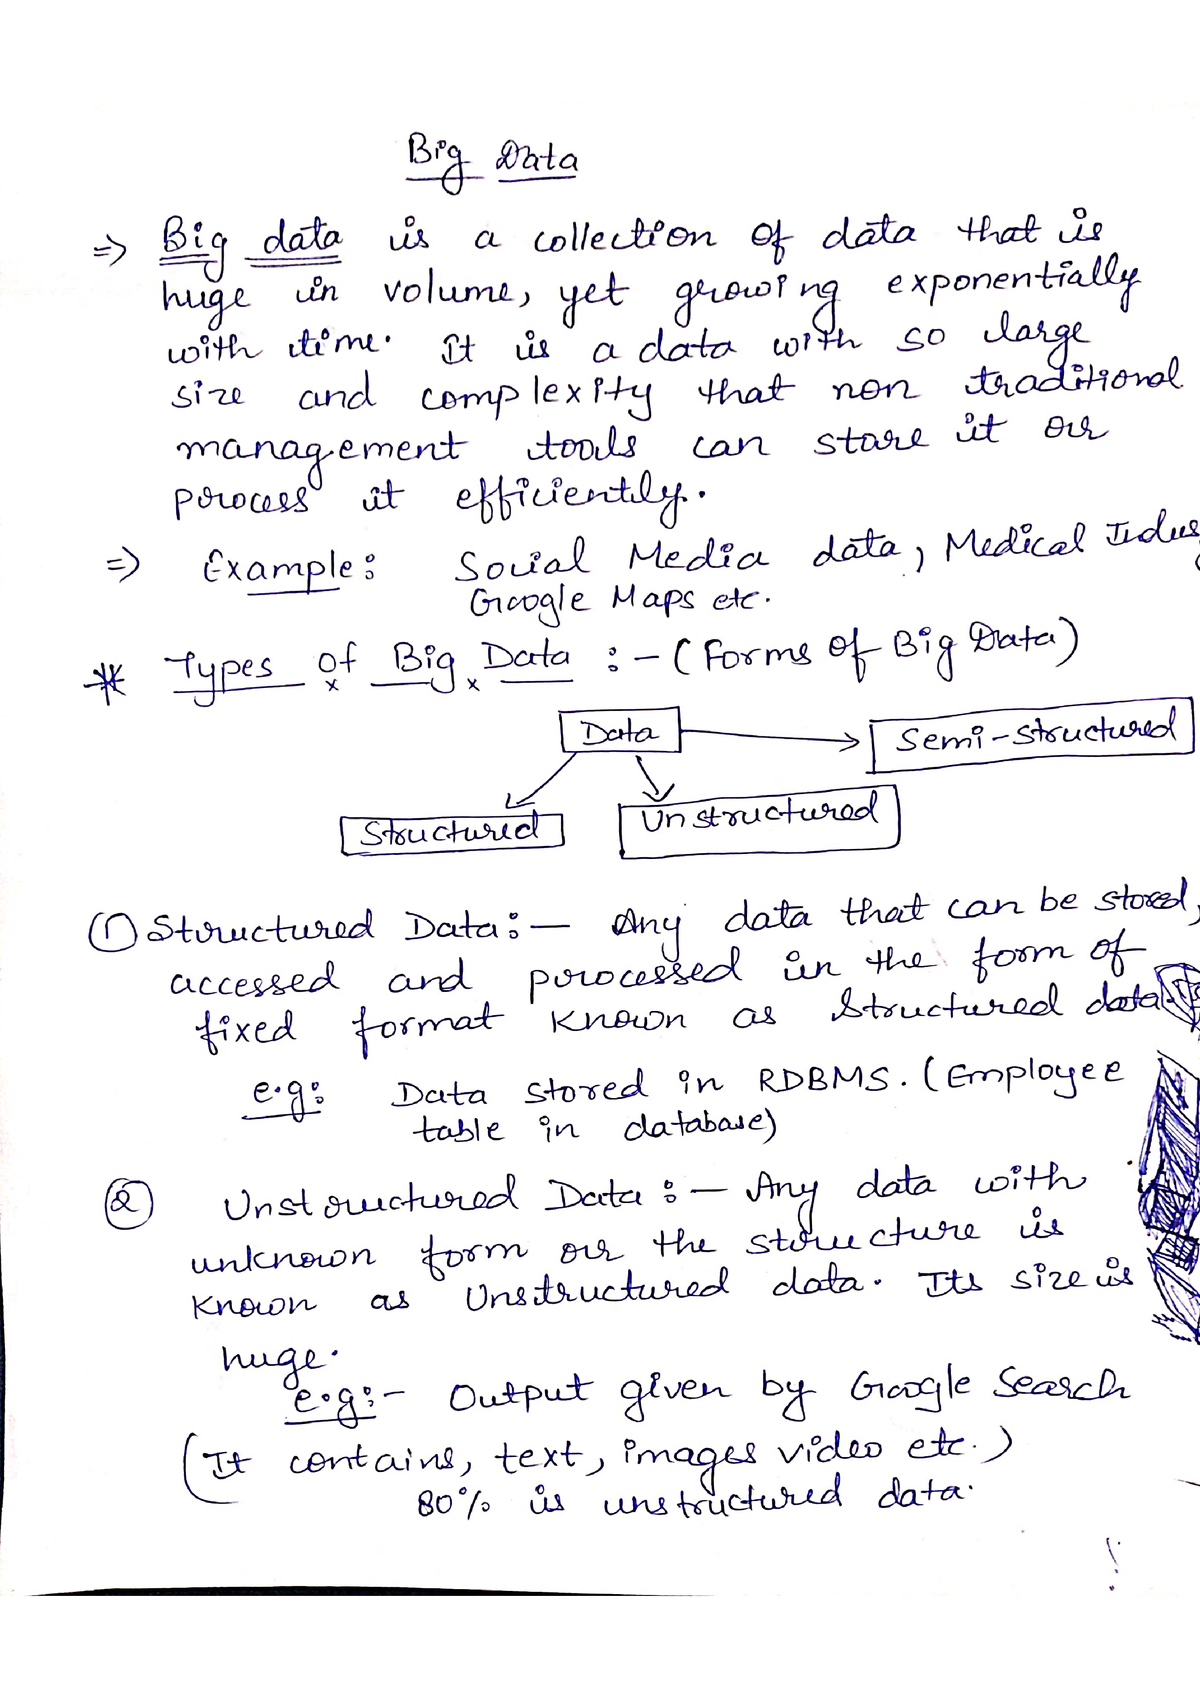 Big Data
=> Big data is a collection of data that is
huge in volume, yet growing exponentially
with time. It is a data with so large
size and complexity that non traditional
management tools can store it or
process it efficiently.
=> Example: Social Media data, Medical Indus
Google Maps etc.
* Types of Big Data :- (Forms of Big Data)
Data
Semi-structured
Structured
Unstructured
① Structured Data:- Any data that can be stored,
accessed and processed in the form of
fixed format known as structured data.
e.g: Data stored in RDBMS. (Employee
table in database)
② Unstructured Data:- Any data with
unknown form or the structure is
known as Unstructured data. Its size is
huge.
e.g:- Output given by Google Search
(It contains, text, images video etc.)
80% is unstructured data.